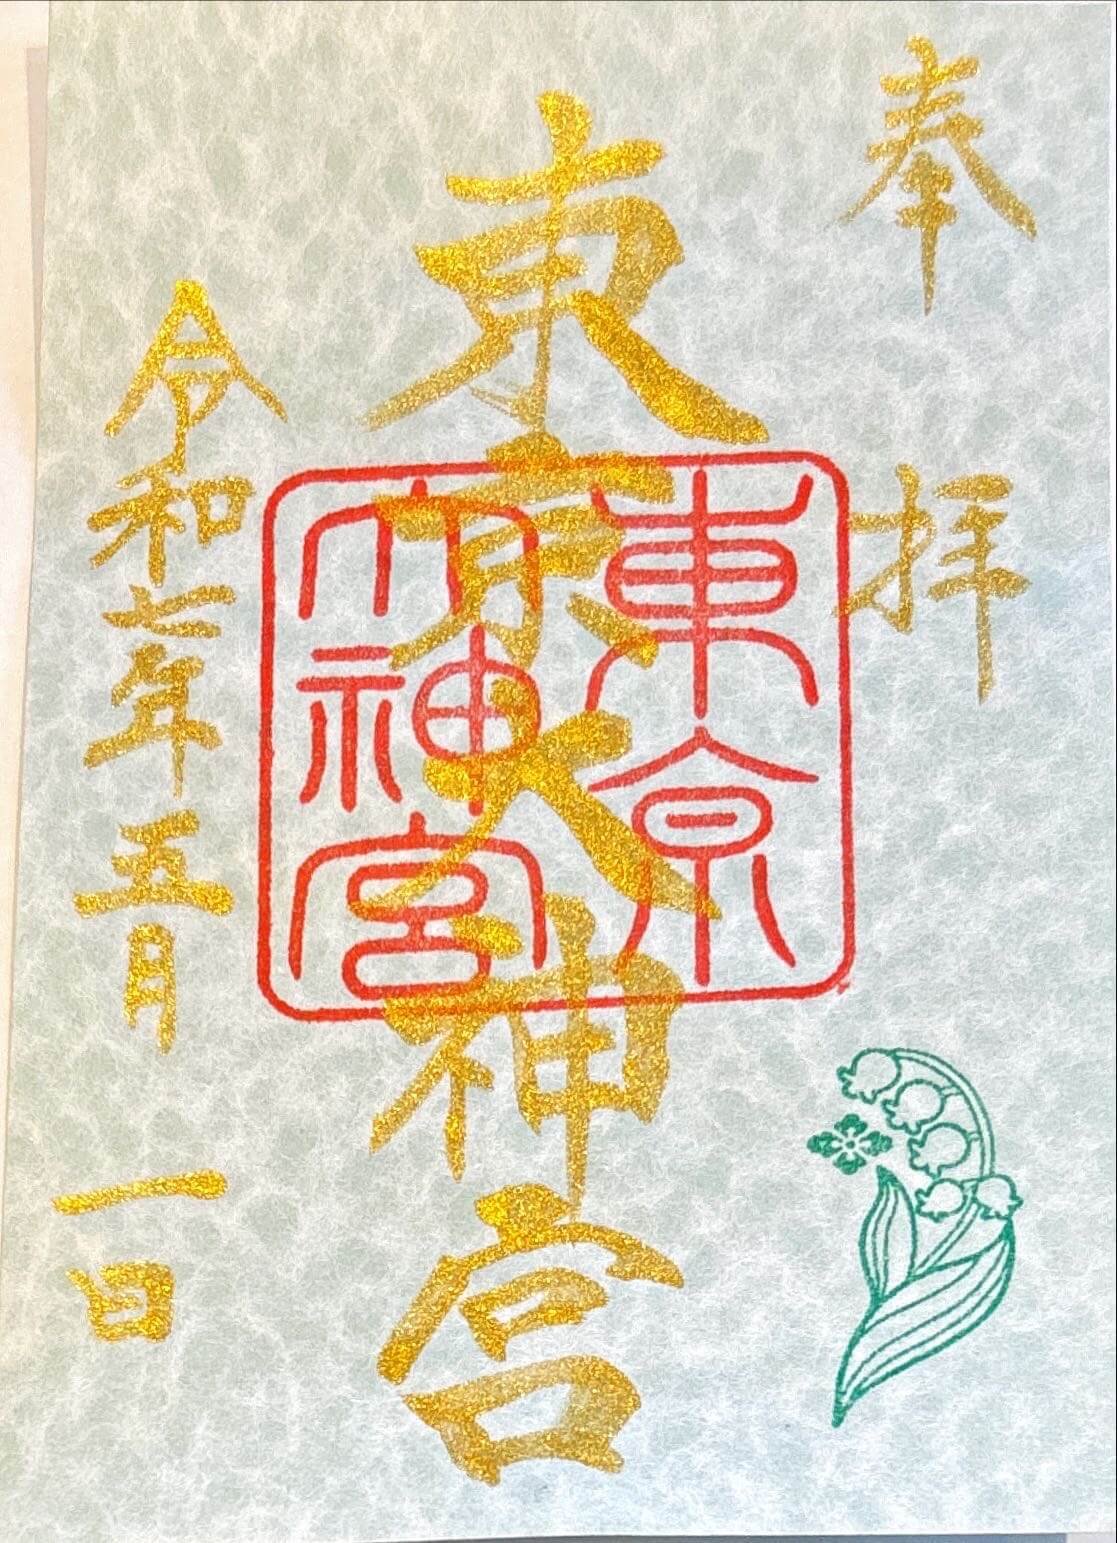 奉拝
東京大神宮
東京
大神宮
令和七年五月一日